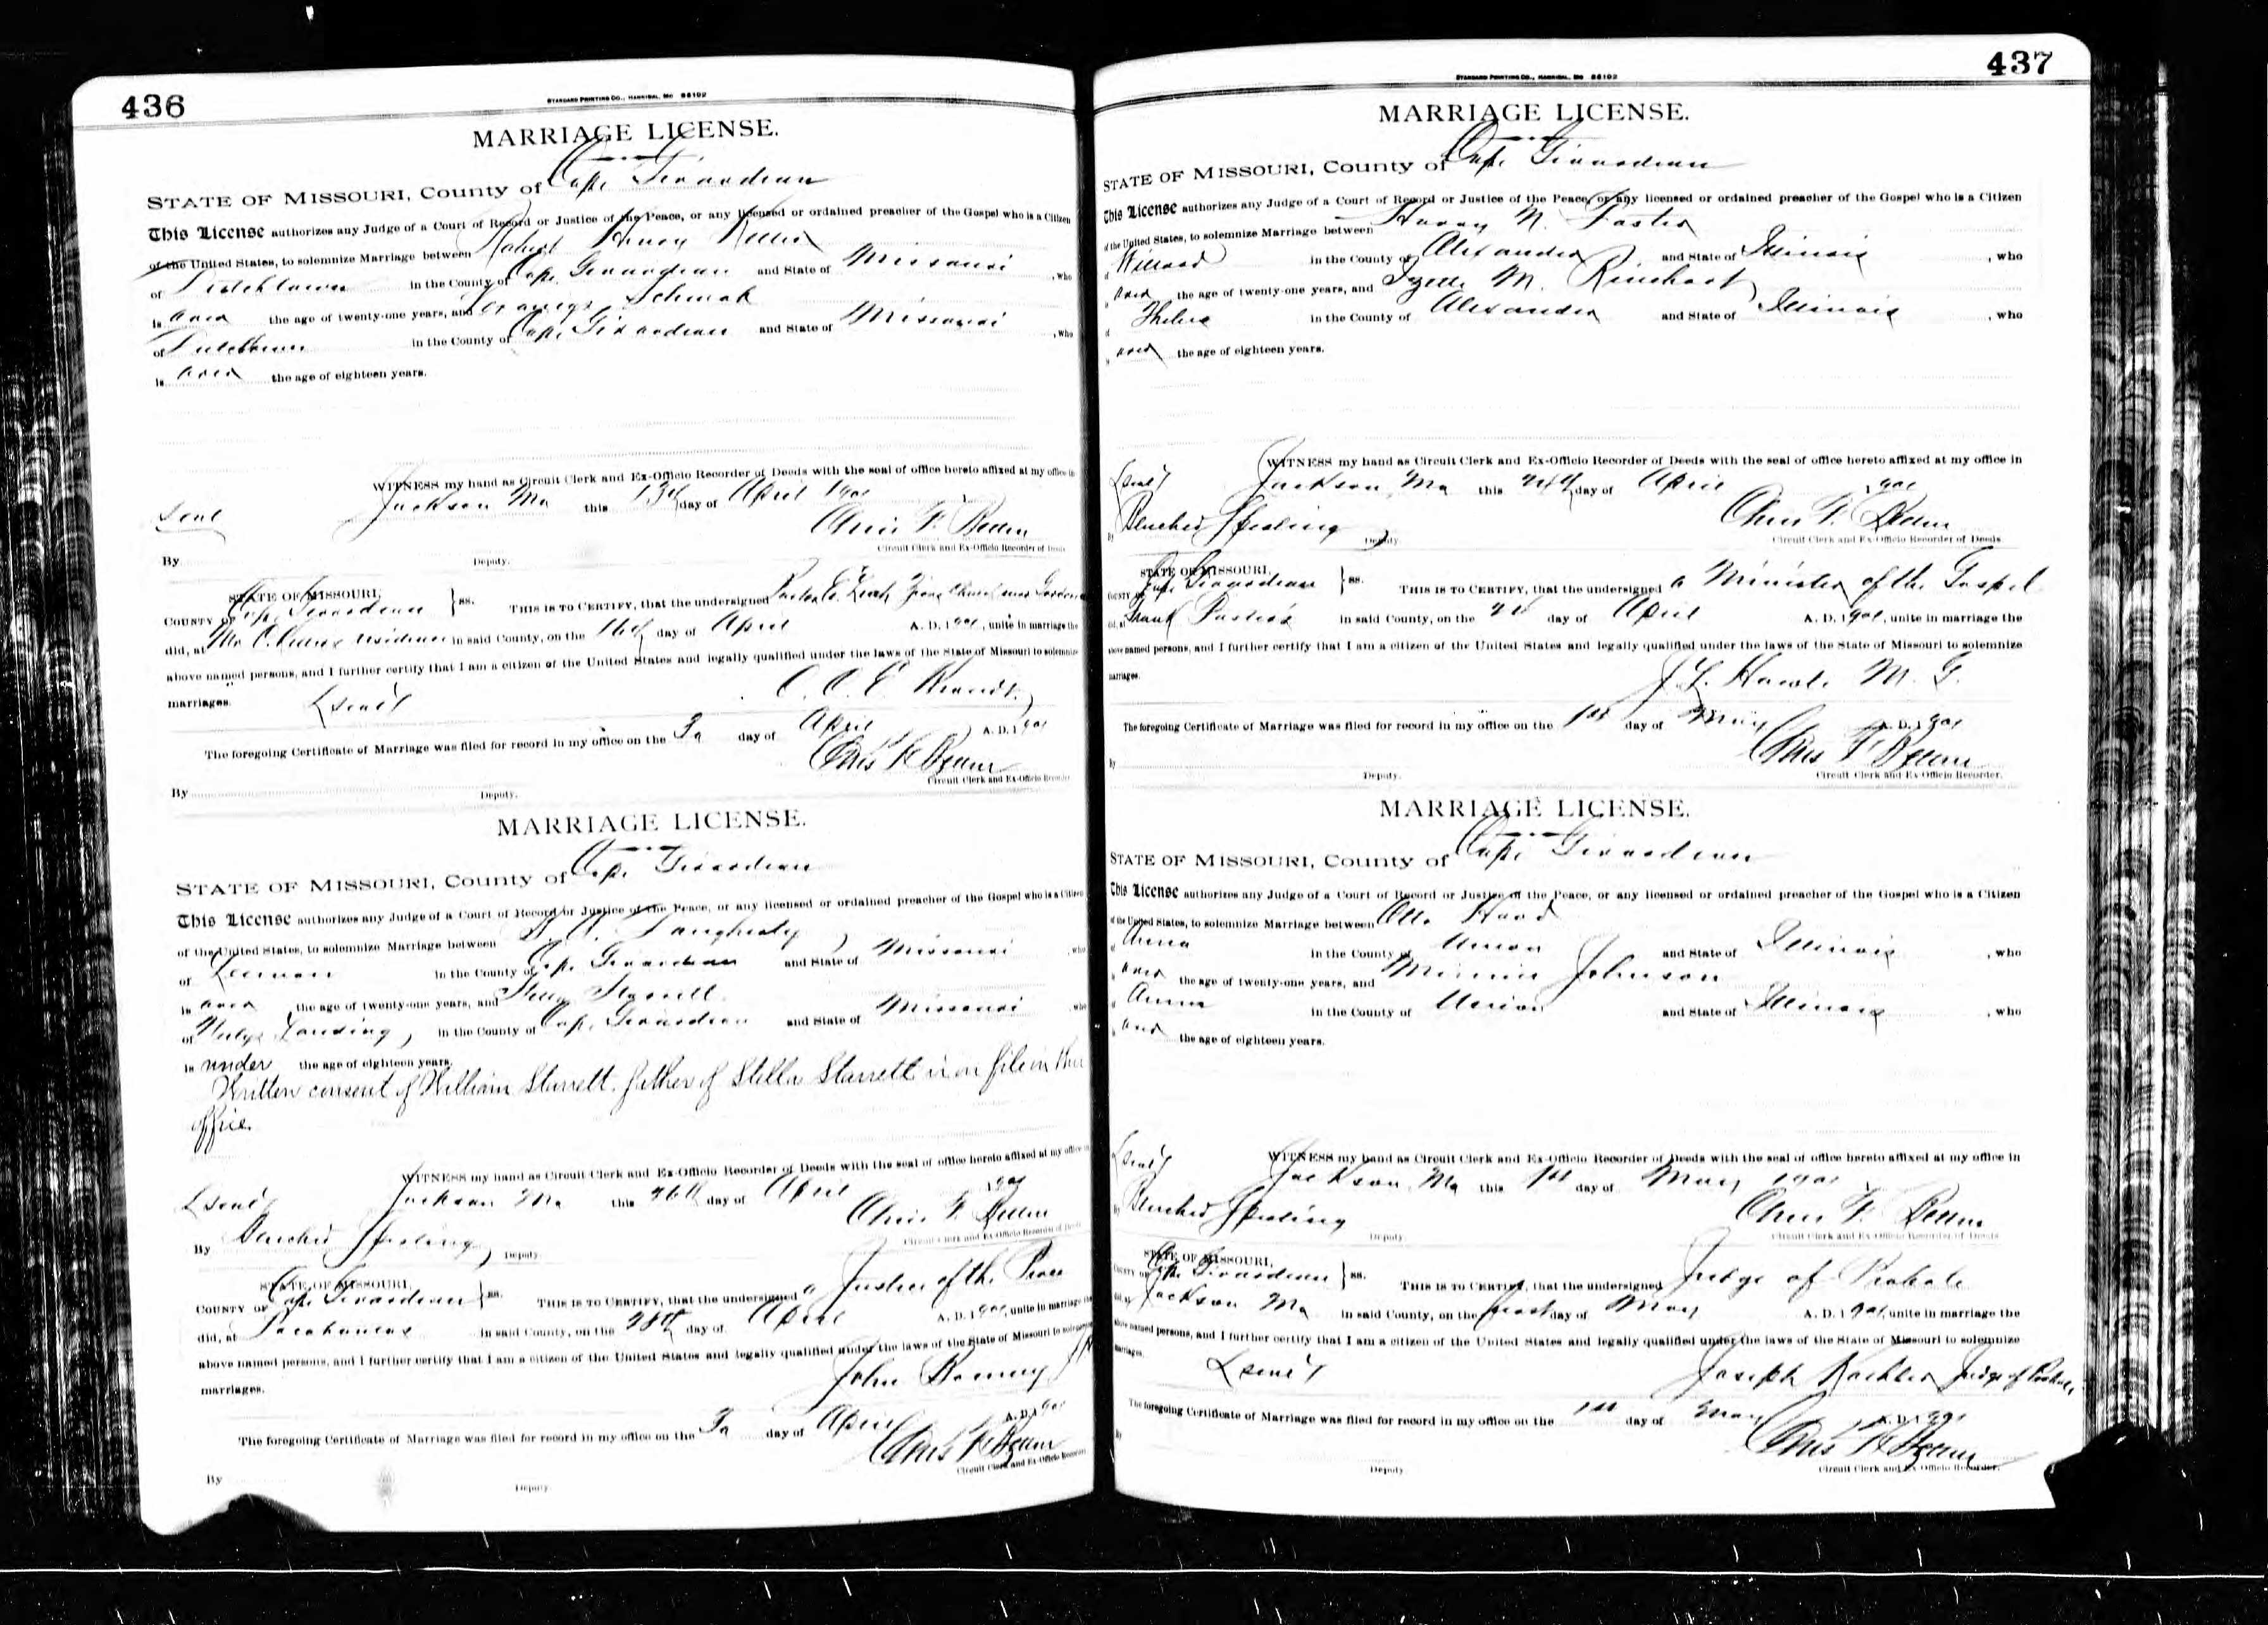 436
STANDARD PRINTING CO., HANNIBAL, MO 88102
MARRIAGE LICENSE.
STATE OF MISSOURI, County of Cape Girardeau
This License authorizes any Judge of a Court of Record or Justice of the Peace, or any licensed or ordained preacher of the Gospel who is a Citizen
of the United States, to solemnize Marriage between Henry
of Dutchtown in the County of Cape Girardeau and State of Missouri, who
is over the age of twenty-one years, and Schwab
of Dutchtown in the County of Cape Girardeau and State of Missouri, who
is over the age of eighteen years.
WITNESS my hand as Circuit Clerk and Ex-Officio Recorder of Deeds with the seal of office hereto affixed at my office in
Jackson Mo this 13th day of April 1901
Seal
Chris F.
Circuit Clerk and Ex-Officio Recorder of Deeds
By Deputy.
STATE OF MISSOURI,
COUNTY OF Cape Girardeau } ss. THIS IS TO CERTIFY, that the undersigned Pastor Church near Gordonv
did, at residence in said County, on the 16th day of April A. D. 1901, unite in marriage the
above named persons, and I further certify that I am a citizen of the United States and legally qualified under the laws of the State of Missouri to solemnize
marriages.
(Seal)
The foregoing Certificate of Marriage was filed for record in my office on the 30 day of April A. D. 1901
Chris F.
Circuit Clerk and Ex-Officio Recorder
By Deputy.
MARRIAGE LICENSE.
STATE OF MISSOURI, County of Cape Girardeau
This License authorizes any Judge of a Court of Record or Justice of the Peace, or any licensed or ordained preacher of the Gospel who is a Citizen
of the United States, to solemnize Marriage between
of Leemon in the County of Cape Girardeau and State of Missouri, who
is over the age of twenty-one years, and Starrett
of Neelys Landing, in the County of Cape Girardeau and State of Missouri, who
is under the age of eighteen years.
Written consent of William Starrett father of Stella Starrett is on file in this
office.
WITNESS my hand as Circuit Clerk and Ex-Officio Recorder of Deeds with the seal of office hereto affixed at my office in
(Seal) Jackson Mo this 26th day of April 1901
Chris F.
Circuit Clerk and Ex-Officio Recorder of Deeds
By Blucher Sperling, Deputy
STATE OF MISSOURI,
COUNTY OF Cape Girardeau } ss. THIS IS TO CERTIFY, that the undersigned a Justice of the Peace
did, at Pocahontas in said County, on the 28th day of April A. D. 1901, unite in marriage the
above named persons, and I further certify that I am a citizen of the United States and legally qualified under the laws of the State of Missouri to solemnize
marriages.
John
The foregoing Certificate of Marriage was filed for record in my office on the 30 day of April A. D. 1901
Chris F.
Circuit Clerk and Ex-Officio Recorder
By Deputy
437
STANDARD PRINTING CO., HANNIBAL, MO 88102
MARRIAGE LICENSE.
STATE OF MISSOURI, County of Cape Girardeau
This License authorizes any Judge of a Court of Record or Justice of the Peace, or any licensed or ordained preacher of the Gospel who is a Citizen
of the United States, to solemnize Marriage between Harry N. Foster
of Willard in the County of Alexander and State of Illinois, who
is over the age of twenty-one years, and M. Rinehart
of Thebes in the County of Alexander and State of Illinois, who
is over the age of eighteen years.
WITNESS my hand as Circuit Clerk and Ex-Officio Recorder of Deeds with the seal of office hereto affixed at my office in
(Seal) Jackson, Mo this day of April 1901
Chris F.
By Blucher Sperling, Deputy.
Circuit Clerk and Ex-Officio Recorder of Deeds.
STATE OF MISSOURI,
COUNTY OF Cape Girardeau } ss. THIS IS TO CERTIFY, that the undersigned a Minister of the Gospel
did, at in said County, on the day of April A. D. 1901, unite in marriage the
above named persons, and I further certify that I am a citizen of the United States and legally qualified under the laws of the State of Missouri to solemnize
marriages.
M. G.
The foregoing Certificate of Marriage was filed for record in my office on the 1st day of May A. D. 1901
Chris F.
By Deputy.
Circuit Clerk and Ex-Officio Recorder.
MARRIAGE LICENSE.
STATE OF MISSOURI, County of Cape Girardeau
This License authorizes any Judge of a Court of Record or Justice of the Peace, or any licensed or ordained preacher of the Gospel who is a Citizen
of the United States, to solemnize Marriage between Otto Hood
of Anna in the County of Union and State of Illinois, who
is over the age of twenty-one years, and Minnie Johnson
of Anna in the County of Union and State of Illinois, who
is over the age of eighteen years.
WITNESS my hand as Circuit Clerk and Ex-Officio Recorder of Deeds with the seal of office hereto affixed at my office in
(Seal) Jackson, Mo this 1st day of May 1901
Chris F.
By Blucher Sperling Deputy
Circuit Clerk and Ex-Officio Recorder of Deeds
STATE OF MISSOURI,
COUNTY OF Cape Girardeau } ss. THIS IS TO CERTIFY, that the undersigned Judge of Probate
did, at Jackson Mo in said County, on the first day of May A. D. 1901, unite in marriage the
above named persons, and I further certify that I am a citizen of the United States and legally qualified under the laws of the State of Missouri to solemnize
marriages.
(Seal) Joseph Judge of Probate
The foregoing Certificate of Marriage was filed for record in my office on the 1st day of May A. D. 1901
Chris F.
By Deputy
Circuit Clerk and Ex Officio Recorder.